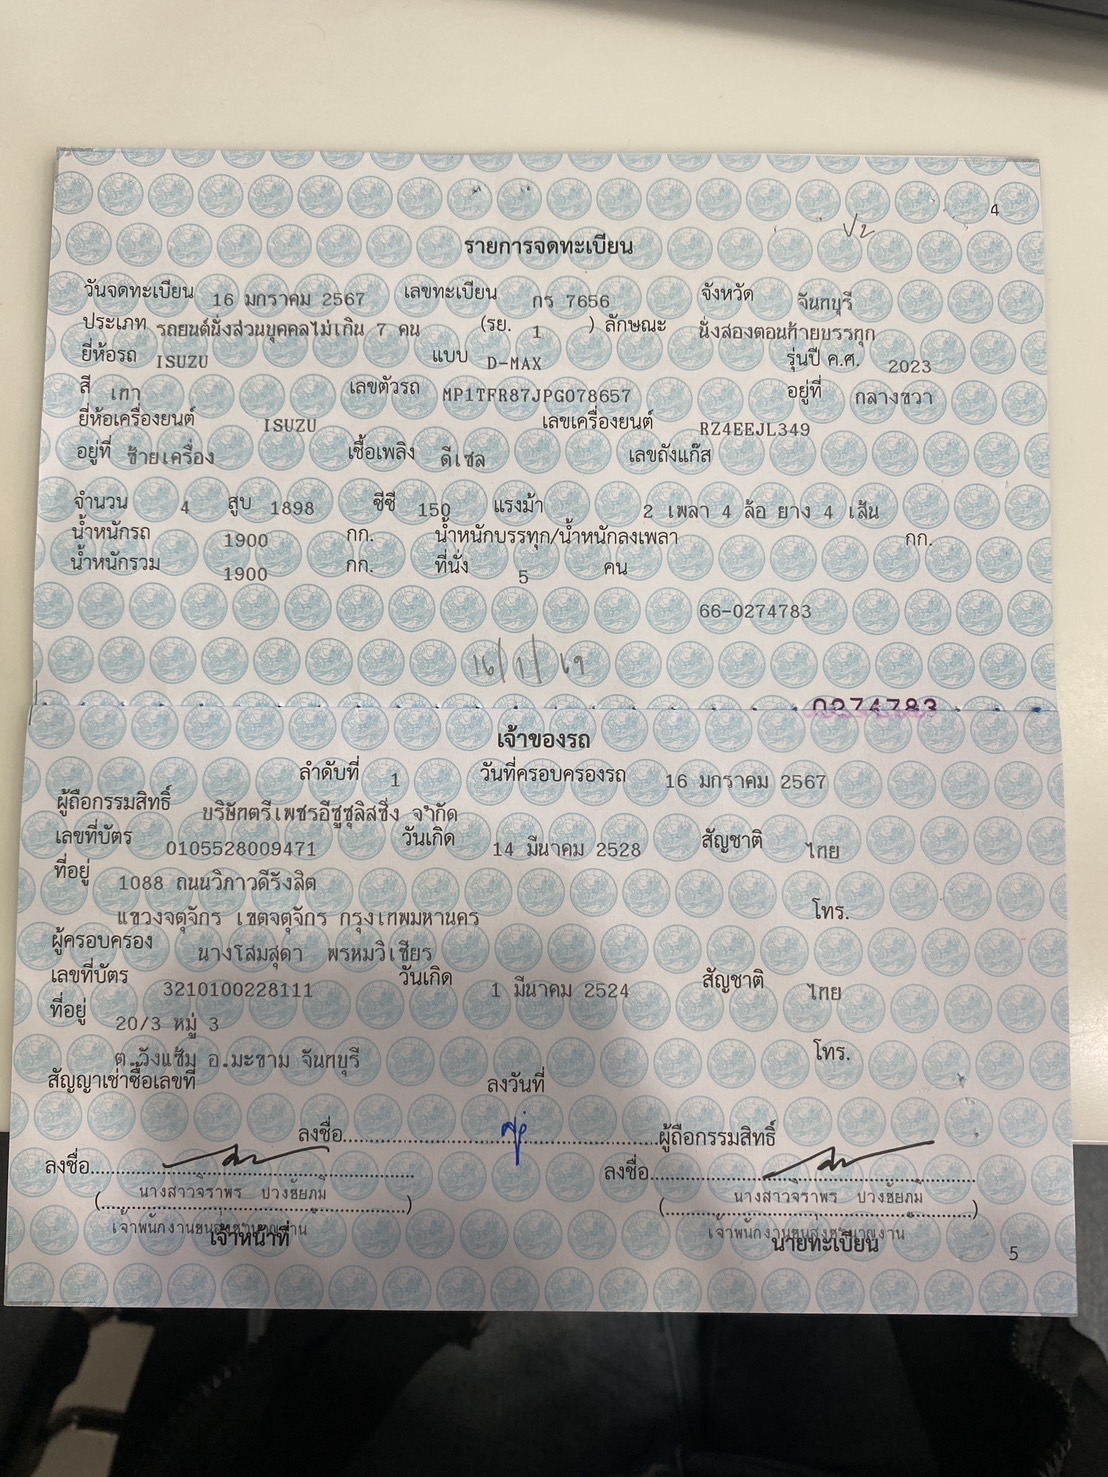 4
√2
รายการจดทะเบียน
วันจดทะเบียน 16 มกราคม 2567 เลขทะเบียน กร 7656 จังหวัด จันทบุรี
ประเภท รถยนต์นั่งส่วนบุคคลไม่เกิน 7 คน (รย. 1 ) ลักษณะ นั่งสองตอนท้ายบรรทุก
ยี่ห้อรถ ISUZU แบบ D-MAX รุ่นปี ค.ศ. 2023
สี เทา เลขตัวรถ MP1TFR87JPG078657 อยู่ที่ กลางขวา
ยี่ห้อเครื่องยนต์ ISUZU เลขเครื่องยนต์ RZ4EEJL349
อยู่ที่ ซ้ายเครื่อง เชื้อเพลิง ดีเซล เลขถังแก๊ส
จำนวน 4 สูบ 1898 ซีซี 150 แรงม้า 2 เพลา 4 ล้อ ยาง 4 เส้น
น้ำหนักรถ 1900 กก. น้ำหนักบรรทุก/น้ำหนักลงเพลา กก.
น้ำหนักรวม 1900 กก. ที่นั่ง 5 คน
66-0274783
16/1/69
0274783
เจ้าของรถ
ลำดับที่ 1 วันที่ครอบครองรถ 16 มกราคม 2567
ผู้ถือกรรมสิทธิ์ บริษัทตรีเพชรอีซูซุลิสซิ่ง จำกัด
เลขที่บัตร 0105528009471 วันเกิด 14 มีนาคม 2528 สัญชาติ ไทย
ที่อยู่ 1088 ถนนวิภาวดีรังสิต
แขวงจตุจักร เขตจตุจักร กรุงเทพมหานคร โทร.
ผู้ครอบครอง นางโสมสุดา พรหมวิเชียร
เลขที่บัตร 3210100228111 วันเกิด 1 มีนาคม 2524 สัญชาติ ไทย
ที่อยู่ 20/3 หมู่ 3
ต.วังแซ้ม อ.มะขาม จันทบุรี โทร.
สัญญาเช่าซื้อเลขที่ ลงวันที่
ลงชื่อ ผู้ถือกรรมสิทธิ์
ลงชื่อ ลงชื่อ
(นางสาวจิราพร ปวงชัยภูมิ) (นางสาวจิราพร ปวงชัยภูมิ)
เจ้าพนักงานขนส่งชำนาญงาน เจ้าพนักงานขนส่งชำนาญงาน
เจ้าหน้าที่ นายทะเบียน
5